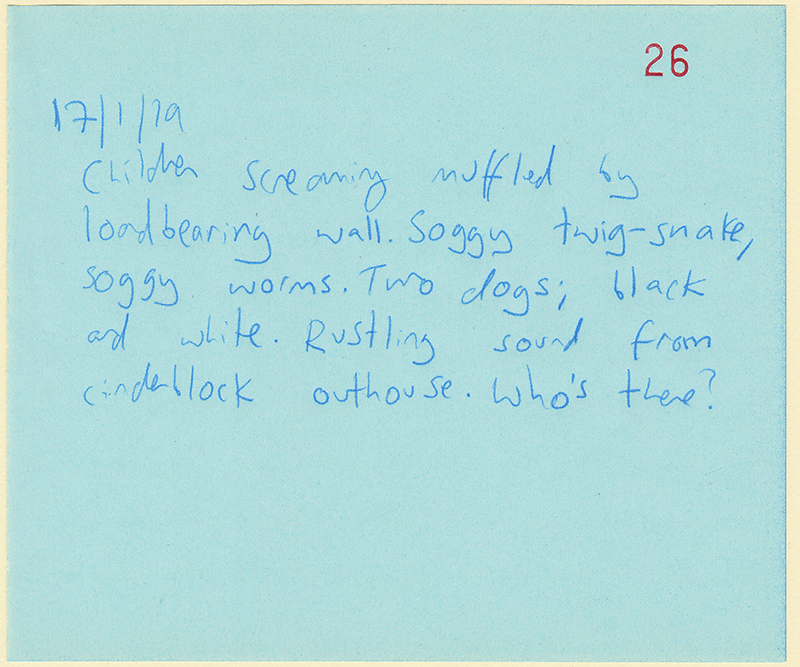 26
17/1/19
Children screaming muffled by
loadbearing wall. Soggy twig-snake,
soggy worms. Two dogs; black
and white. Rustling sound from
cinderblock outhouse. Who's there?